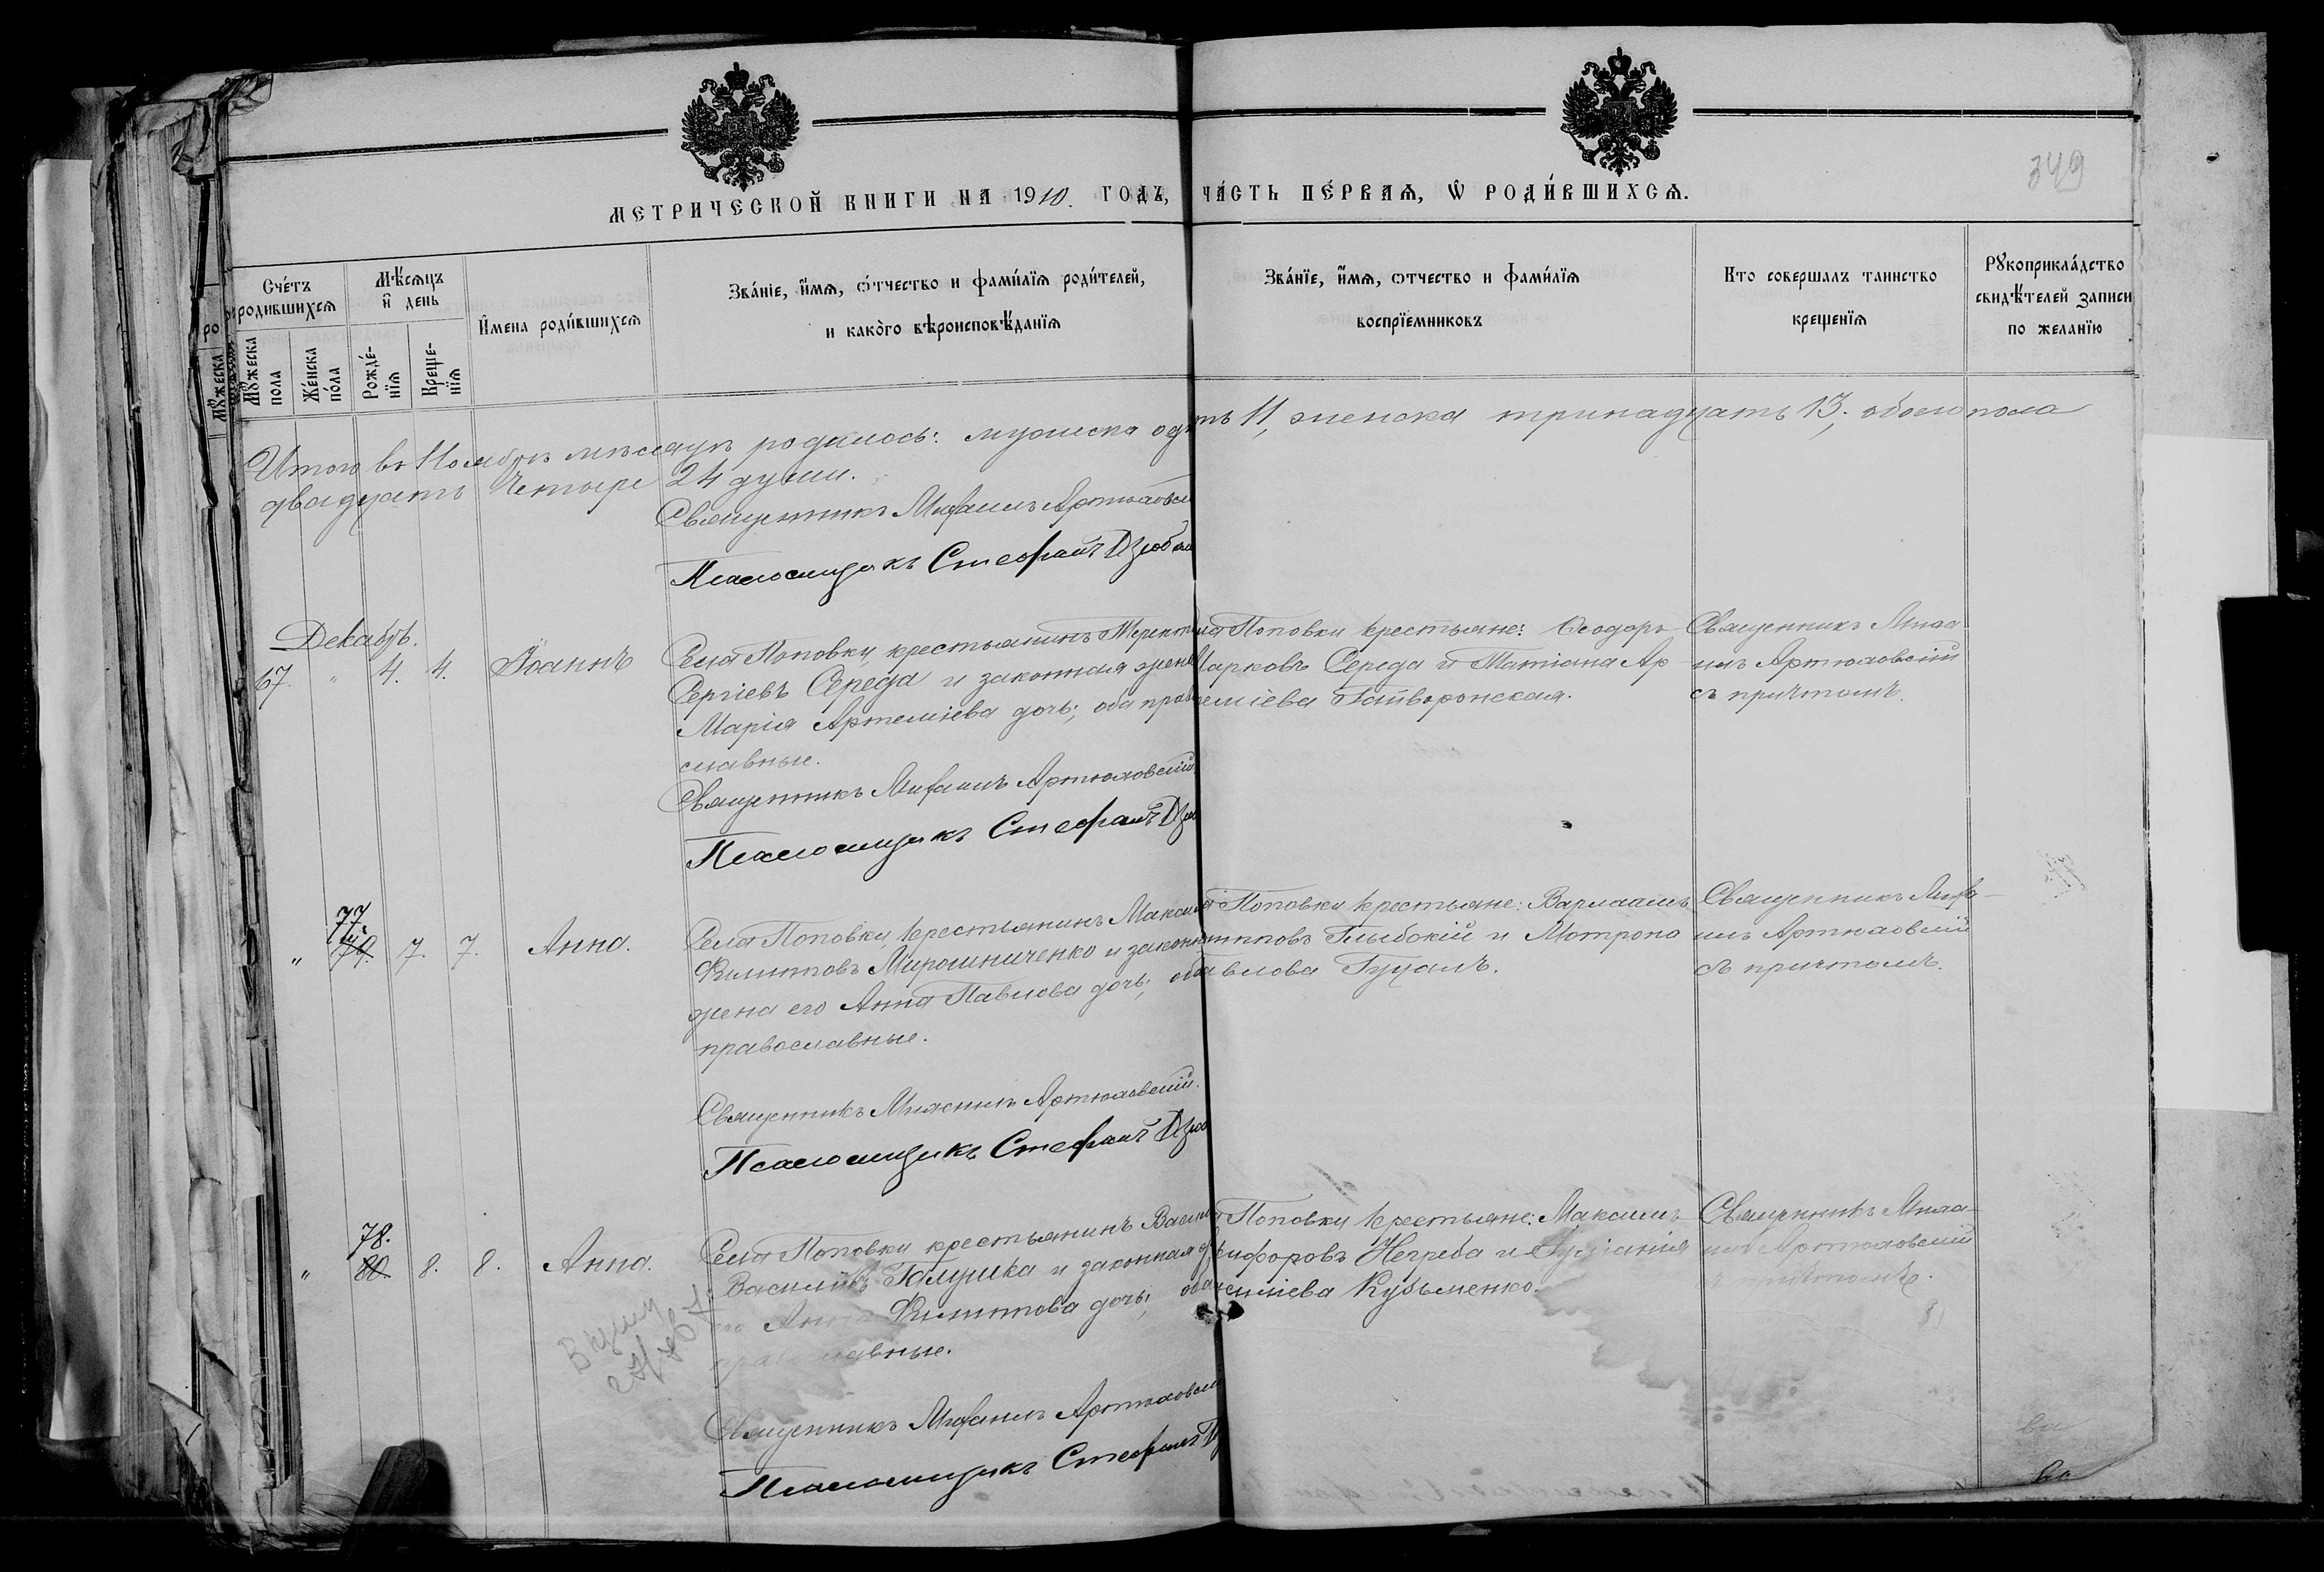 349
МЕТРИЧЕСКОЙ КНИГИ НА 1910. ГОДЪ, ЧА́СТЬ ПЕ́РВАѦ, Ѡ҆ РОДИ́ВШИХСѦ.
Сче́тъ родившихсѧ
Мѣ́сѧцъ и҆ день
И҆мена роди́вшихсѧ
Зва́нїе, и҆́мѧ, ѻ҆́тчество и фами́лїѧ роди́телей,
и како̀го вѣроисповѣ́данїѧ
Зва́нїе, и҆́мѧ, ѻтчество и фами́лїѧ
воспрїемниковъ
Кто совершалъ таинство
крещенїѧ
Рꙋкоприкла́дство
свидѣ́телей записи
по желанїю
Мꙋжеска пола
Же́нска по́ла
Рожде́-нїѧ
Креще-нїѧ
Итого въ Ноябрѣ мѣсяцѣ родилось: мужеска од ть 11, женска тринадцать 13; обоего пола
двадцать четыре 24 души.
Священникъ Михаилъ Артюховск
Псаломщикъ Стефанъ Дзюба
Декабрь.
67. " 4. 4. Іоаннъ
Села Поповки, крестьянинъ Терент
Сергіевъ Середа и законная жена
Марія Артеміева дочь; оба право
славные.
Священникъ Михаилъ Артюховскій.
Псаломщикъ Стефанъ Дзю
Поповки крестьяне: Ѳеодоръ
Марковъ Середа и Татіана Ар
теміева Гайворонская.
Священникъ Миха
илъ Артюховскій
съ причтомъ.
" 77 79. 7. 7. Анна.
Села Поповки, крестьянинъ Макси
Филипповъ Мирошниченко и законн
жена его Анна Павлова дочь; оба
православные.
Священникъ Михаилъ Артюховскій.
Псаломщикъ Стефанъ Дзю
Поповки крестьяне: Варлаамъ
липповъ Глыбокій и Мотрона
Павлова Гуцалъ.
Священникъ Миха-
илъ Артюховскій
съ причтомъ.
" 78. 80. 8. 8. Анна.
Села Поповки крестьянинъ Васил
Васильевъ Галушка и законная
его Анна Филиппова дочь; оба
православные.
Священникъ Михаилъ Артюховск
Псаломщикъ Стефанъ Д
Поповки крестьяне: Максимъ
Никифоровъ Негреба и
силіева Кузьменко.
Священникъ Миха-
илъ Артюховскій
съ причтомъ.